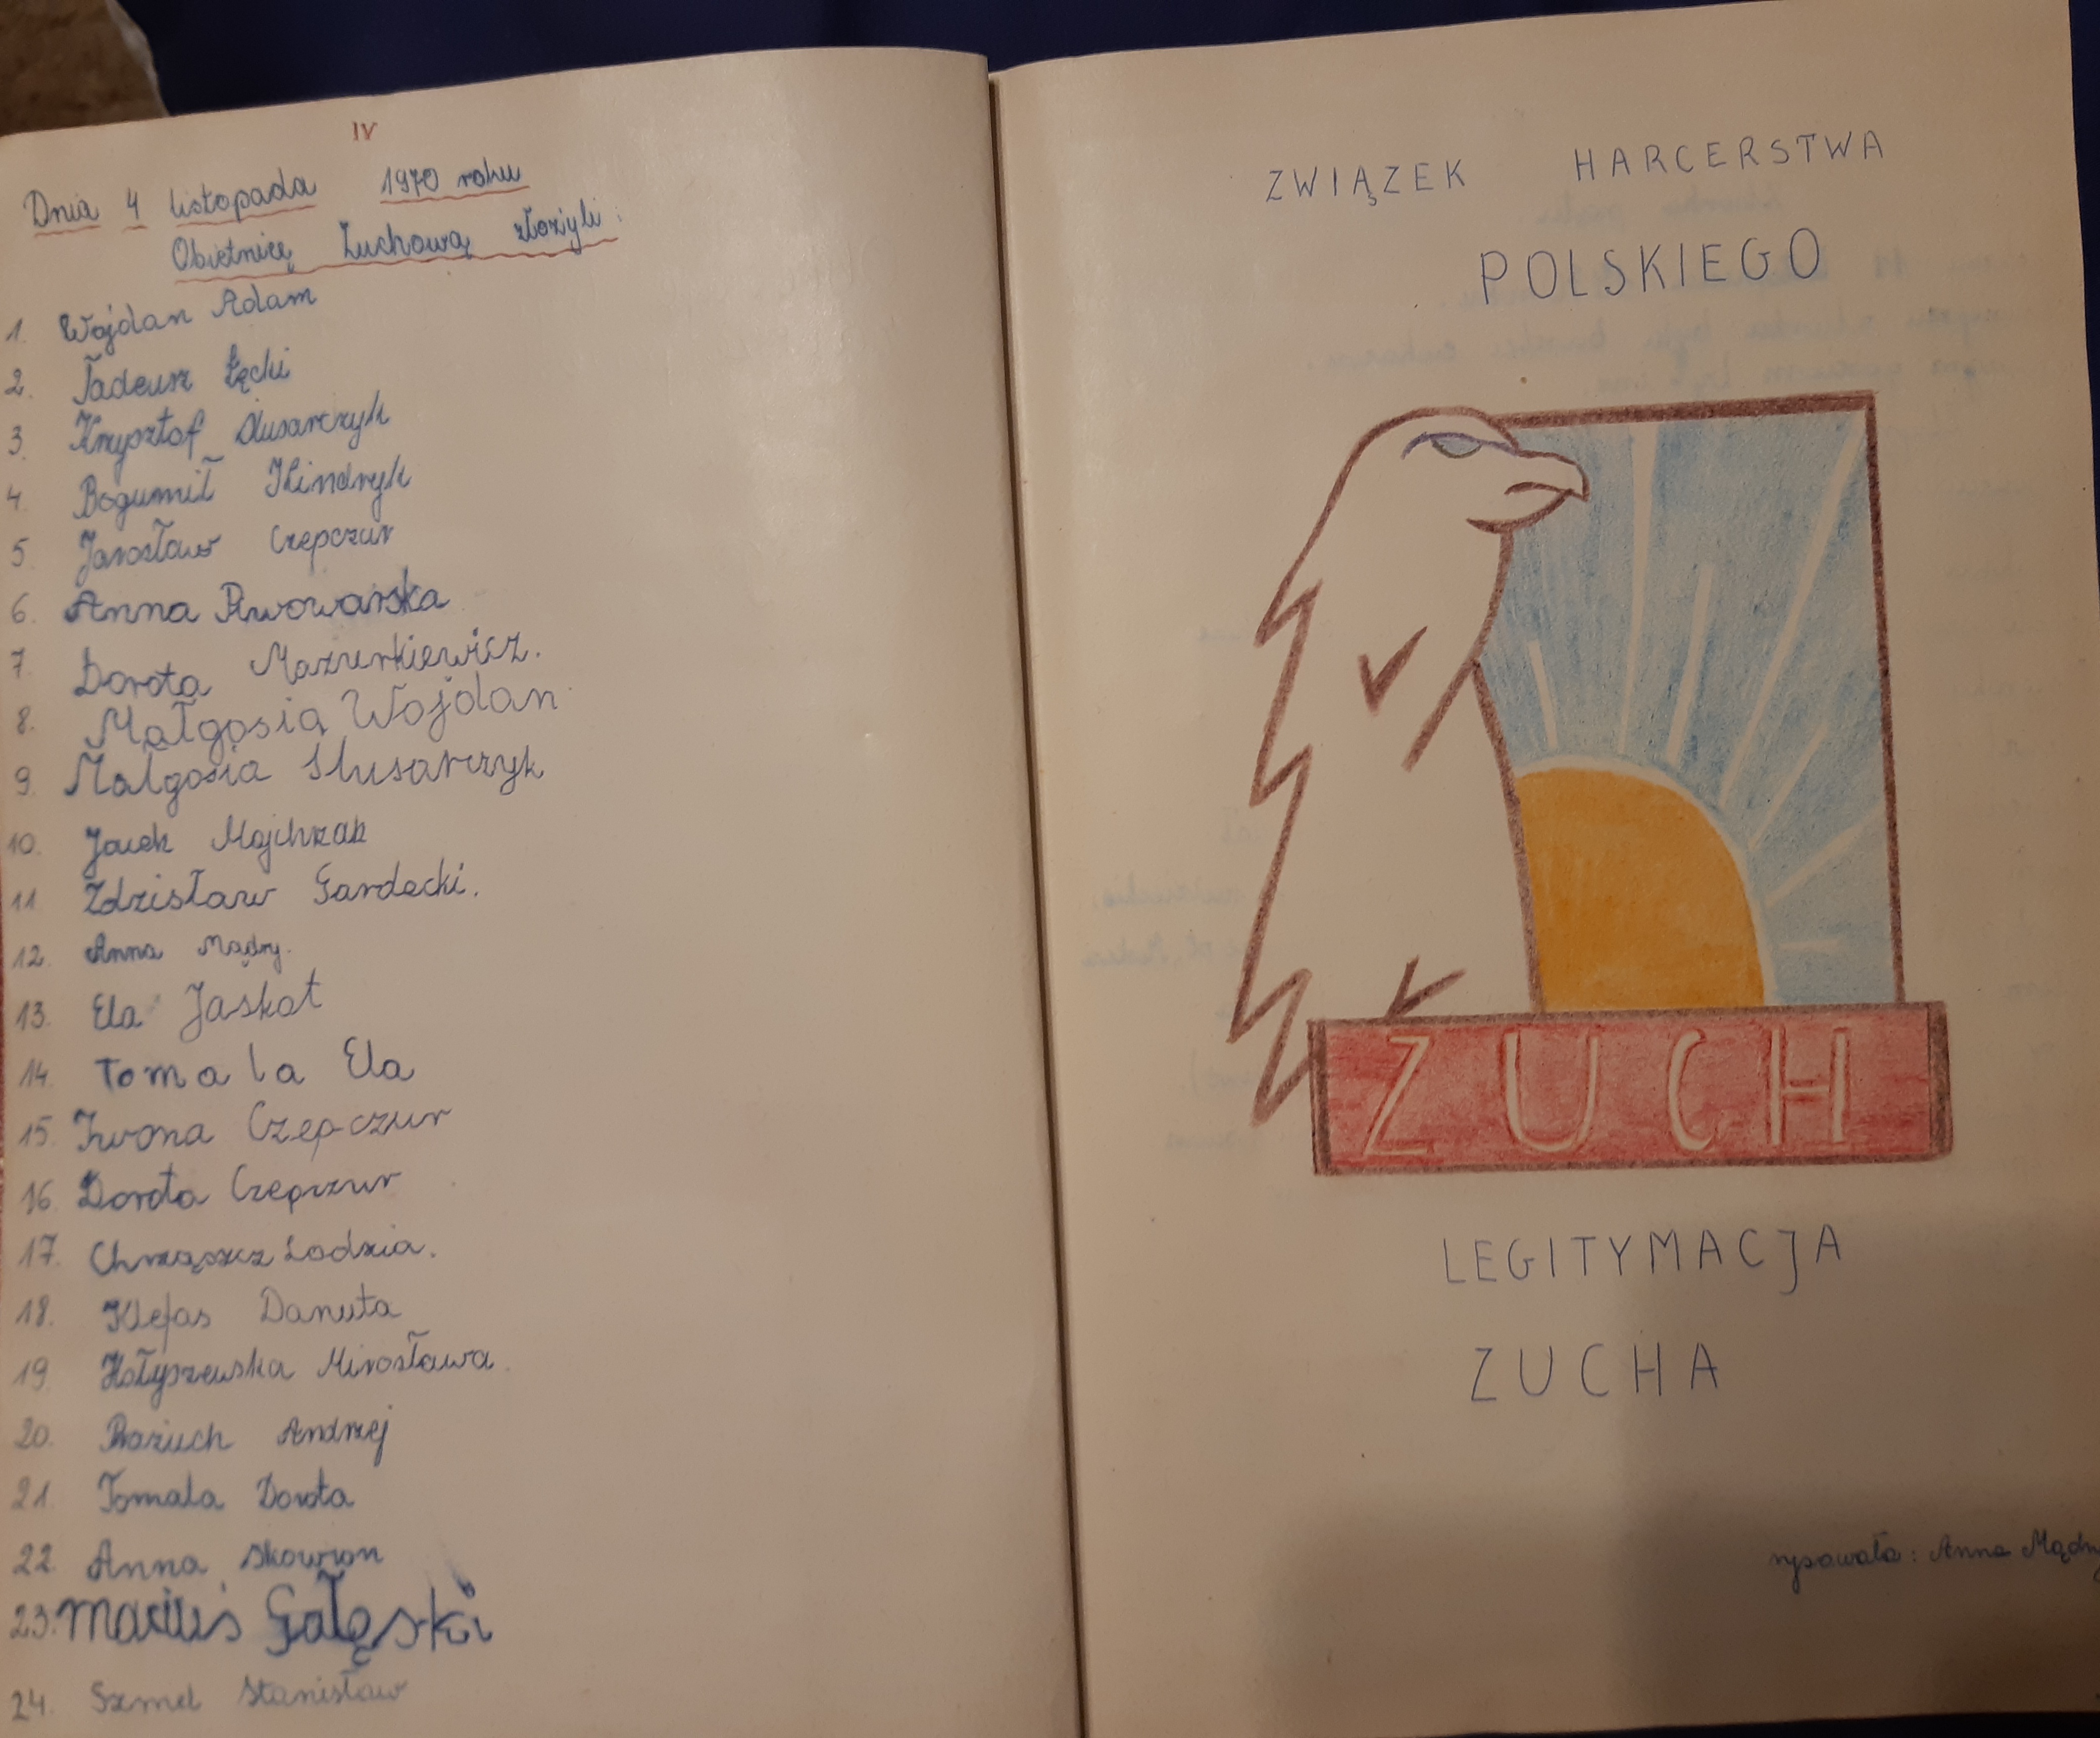 IV
Dnia 4 listopada 1970 roku
Obietnicę Zuchową złożyli:
1. Wojdan Adam
2. Tadeusz Łęcki
3. Krzysztof Ślusarczyk
4. Bogumił
5. Jarosław Czepczur
6. Anna Piwowarska
7. Dorota Mazurkiewicz.
8. Małgosia Wojdan
9. Małgosia Slusarczyk
10. Jacek Majchrzak
11. Zdzisław Gardecki.
12. Anna Mądry.
13. Ela Jaskot
14. Tomala Ela
15. Iwona Czepczur
16. Dorota Czepczur
17. Chrząszcz Lodzia.
18. Klefas Danuta
19. Hołyszewska Mirosława.
20. Andrzej
21. Tomala Dorota
22. Anna Skowron
23. Gałęski
24. Szmel Stanisław
ZWIĄZEK HARCERSTWA
POLSKIEGO
ZUCH
LEGITYMACJA
ZUCHA
rysowała: Anna Mądry